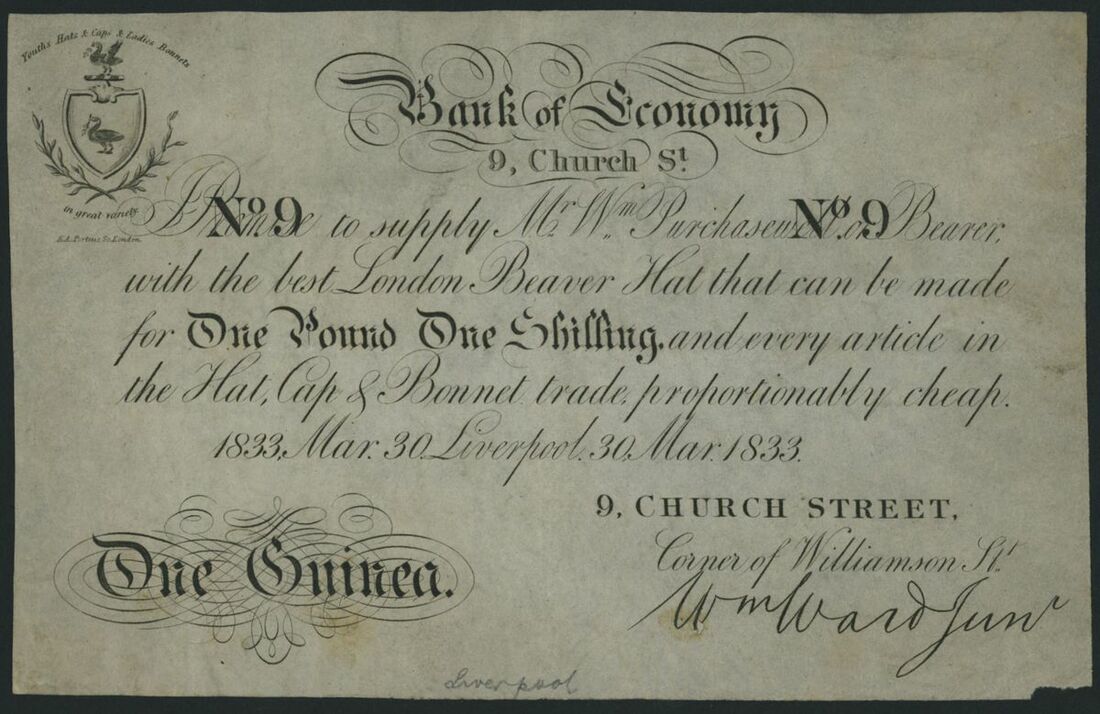 Youths Hats & Caps & Ladies Bonnets
in great variety
Bank of Economy
9, Church St.
I Promise to supply Mr. Wm. Purchasewell or Bearer,
No. 9 No. 9
with the best London Beaver Hat that can be made
for One Pound One Shilling, and every article in
the Hat, Cap & Bonnet trade, proportionably cheap.
1833, Mar. 30, Liverpool. 30, Mar. 1833.
9, CHURCH STREET,
Corner of Williamson St.
One Guinea.
Wm Ward Junr
Liverpool